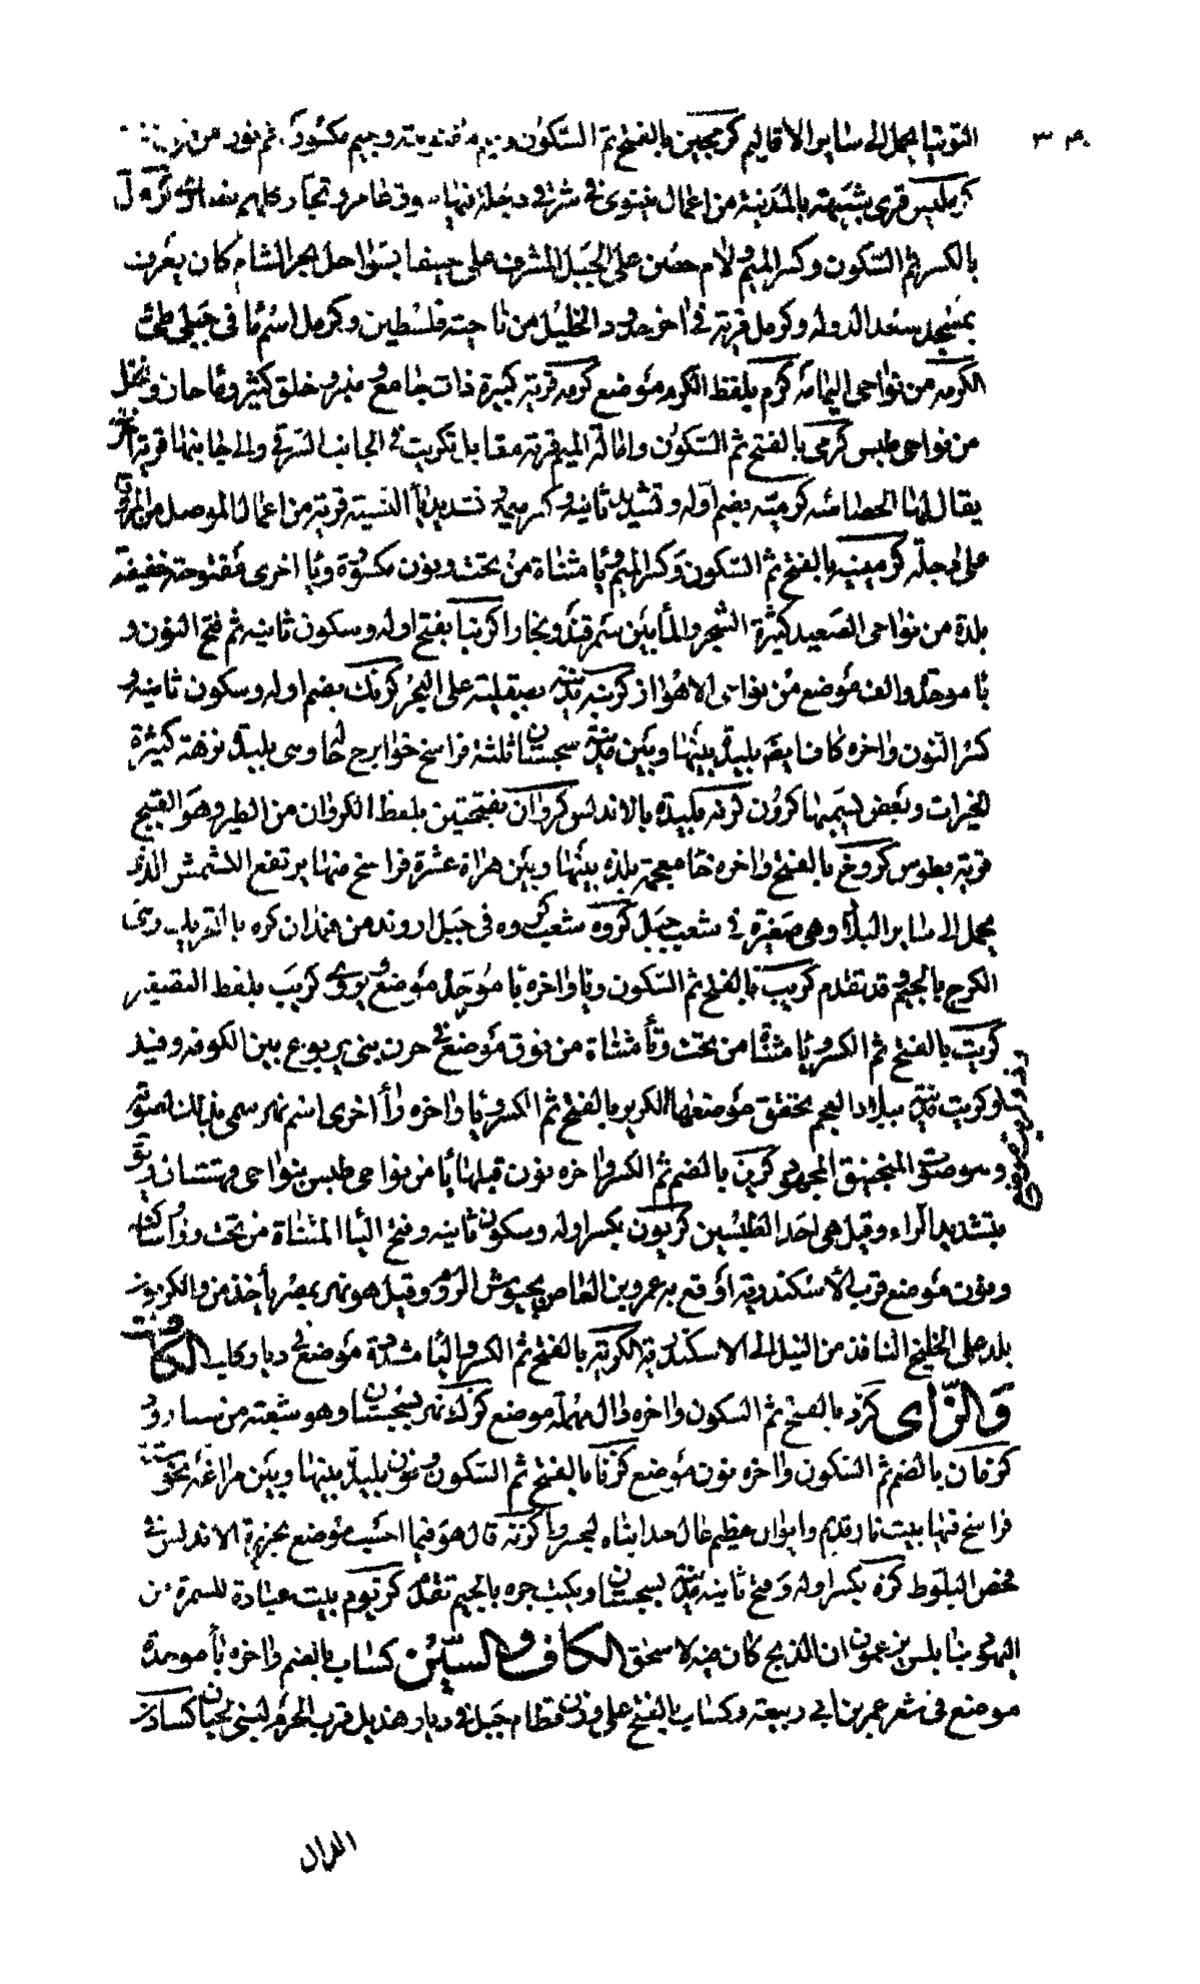 التوتيا يحمل الى ساير الاقاليم كرمجين بالفتح ثم السكون وجيم مكسورة ثم نون من قرى
كرمليس قرية شبيهة بالمدينة من اعمال نينوى في شرقي دجلة فيها سوق عامر وتجار كرمل
بالكسر ثم السكون وكسر الميم ولام حصن على الجبل المشرف على حيفا بسواحل بحر الشام كان يعرف
بمسجد سعد الدولة وكرمل قرية في اخر حدود الخليل من ناحية فلسطين وكرمل اسم ما في جبلي طيئ
الكرمة من نواحي اليمامة كرم بلفظ الكرم موضع كرمة قرية كبيرة ذات جامع ومنبر وخلق كثير وما جار ونخل
من نواحي طبس كرمى بالفتح ثم السكون وامالة الميم قرية مقابل تكريت في الجانب الشرقي والى جانبها قرية اخرى
يقال لها الحصاصة كرمية بضم اوله وتشديد ثانيه وكسر ميمه وتشديد يا النسبة قرية من اعمال الموصل من المروج
على دجلة كرمينية بالفتح ثم السكون وكسر الميم ويا مثناة من تحت ونون مكسورة ويا اخرى مفتوحة خفيفة
بلدة من نواحي الصعيد كثيرة الشجر والما بين سمرقند وبخارا كرنبا بفتح اوله وسكون ثانيه ثم فتح النون و
با موحدة والف موضع من نواحي الاهواز كرنبة مدينة بصقيلية على البحر كرنك بضم اوله وسكون ثانيه و
كسر النون واخره كاف ايضا بليدة بينها وبين مدينة سجستان ثلثة فراسخ خوارج كلها وهي بليدة نزهة كثيرة
الخيرات وبعض يسميها كرون كرنة بليدة بالاندلس كروان بفتحتين بلفظ الكروان من الطير وهو القبج
قرية بطوس كروخ بالفتح واخره خا معجمة بلدة بينها وبين هراة عشرة فراسخ منها يرتفع الكشمش الذي
يحمل الى ساير البلاد وهي صغيرة في شعب جبل كروه شعب كروه في جبل اروند من همذان كره بالتقريب وهي
الكرج بالجيم وقد تقدم كريب بالفتح ثم السكون ويا واخره با موحدة موضع كريب بلفظ التصغير
كريت بالفتح ثم الكسر ويا مثناة من تحت وتا مثناة من فوق موضع في حزن بني يربوع بين الكوفة وفيد
وكريت مدينة ببلاد العجم تحقق موضعها الكرير بالفتح ثم الكسر ويا واخره را اخرى اسم نهر سمي بذلك لصوته
وهو صوت المنجنيق المجهود كرين بالضم ثم الكسر واخره نون قبلها يا من نواحي طبس بنواحي قهستان
بتشديد الراء وقيل هي احد الطبسين كريون بكسر اوله وسكون ثانيه وفتح اليا المثناة من تحت وواو ساكنة
ونون موضع قرب الاسكندرية اوقع به عمرو بن العاص بجيوش الروم وقيل هو نهر بمصر ياخذ من والكريون
بلد على الخليج النافذ من النيل الى الاسكندرية الكرية بالفتح ثم الكسر واليا مشددة موضع في ديار كلب الكاف
والزاي كزد بالفتح ثم السكون واخره دال مهملة موضع كزك نهر بسجستان وهو شعبة من سنارود
كزمان بالضم ثم السكون واخره نون موضع كزنا بالفتح ثم السكون ونون بليدة بينها وبين مراغة نحو ستة
فراسخ فيها بيت نار قديم وايوان عظيم عال جدا بناه كيخسرو كزنة قال هو فيما احسب موضع بجزيرة الاندلس في
فحص البلوط كزه بكسر اوله وفتح ثانيه مدينة بسجستان ويكتب جزه بالجيم تقدم كزيوم بيت عبادة للسمرة من
اليهود بنابلس يزعمون ان الذبح كان فيه لاسحق الكاف والسين كساب بالضم واخره با موحدة
موضع في شعر عمر بن ابي ربيعة وكساب بالفتح على وزن قطام جبل في ديار هذيل قرب الحزم لبني لحيان كسادن